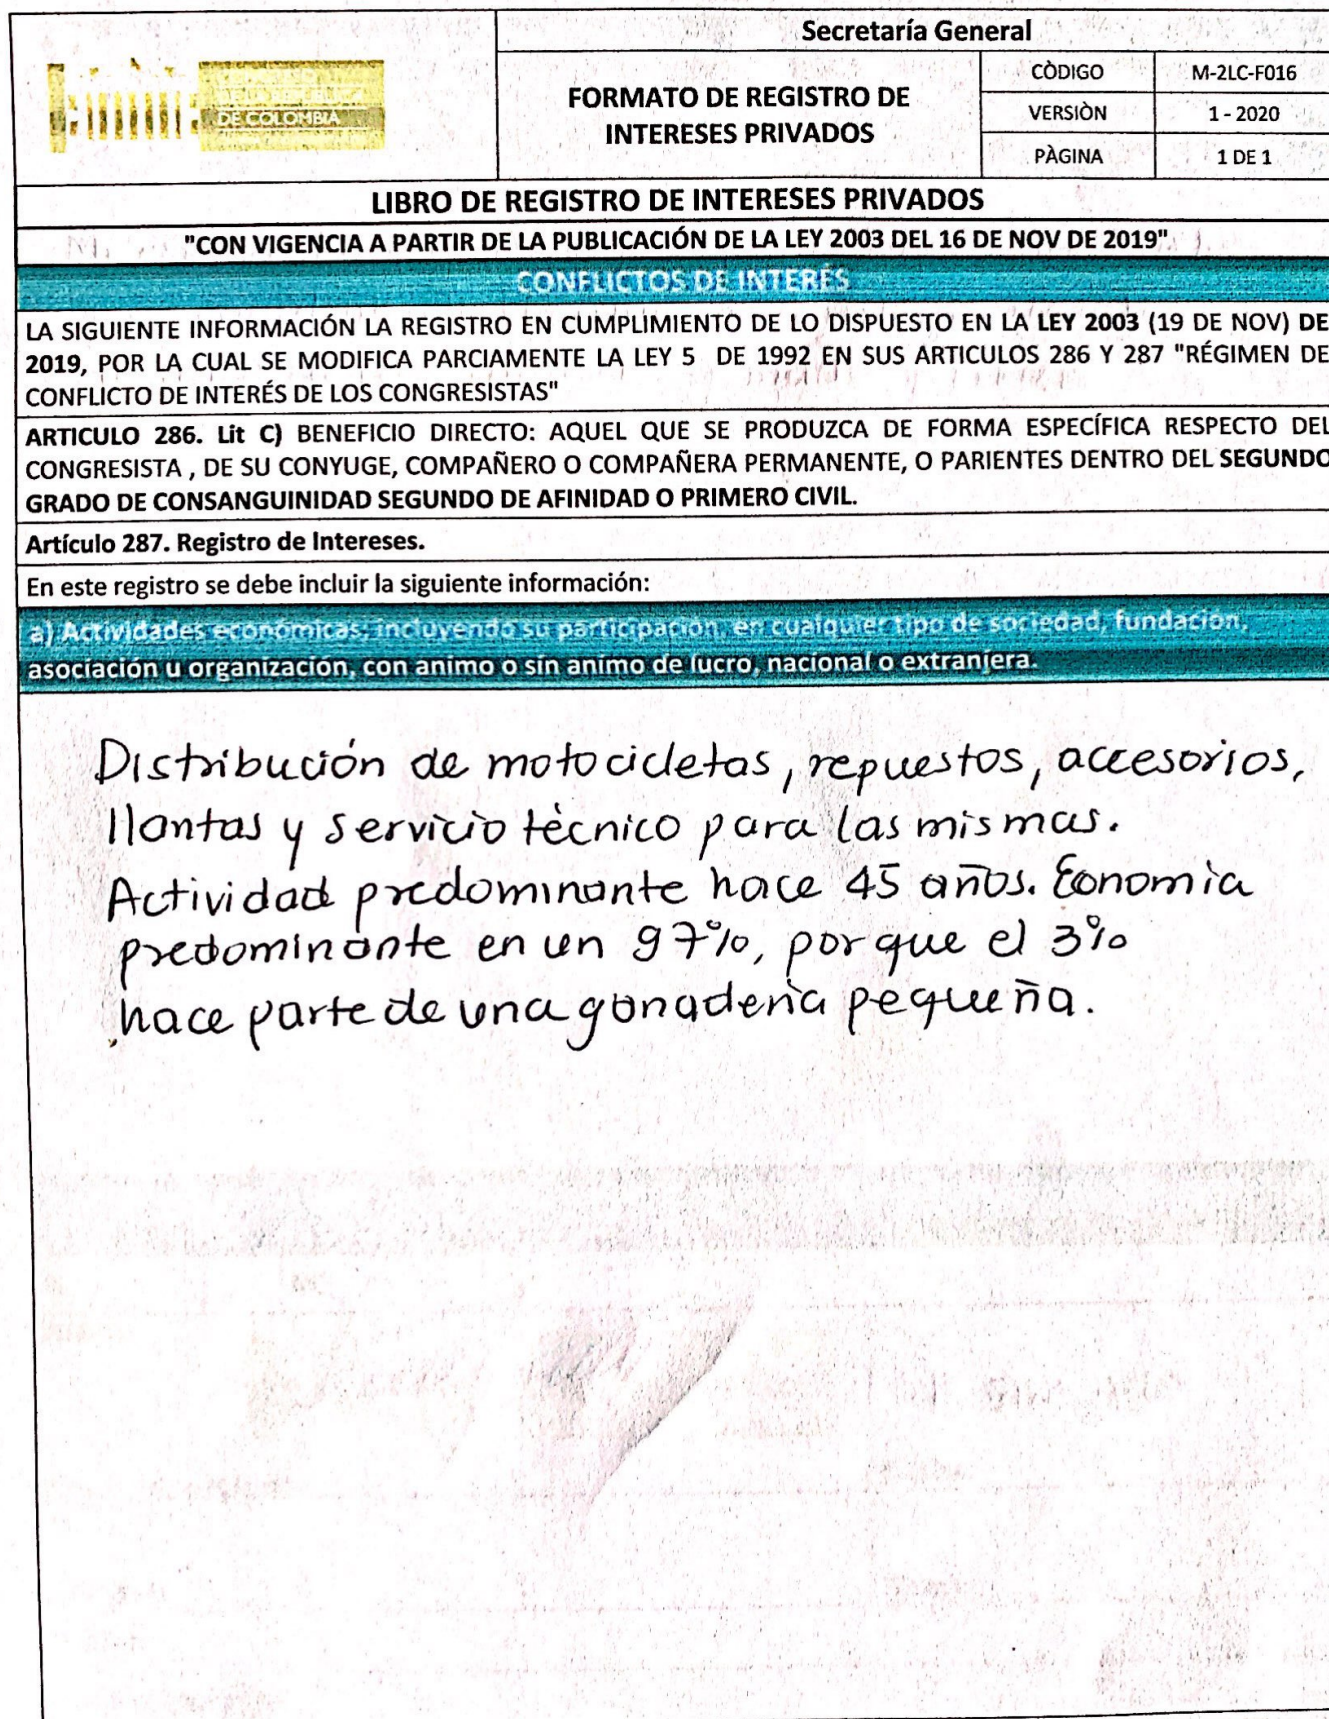 Secretaría General
DE COLOMBIA
FORMATO DE REGISTRO DE
INTERESES PRIVADOS
CÒDIGO M-2LC-F016
VERSIÒN 1 - 2020
PÀGINA 1 DE 1
LIBRO DE REGISTRO DE INTERESES PRIVADOS
"CON VIGENCIA A PARTIR DE LA PUBLICACIÓN DE LA LEY 2003 DEL 16 DE NOV DE 2019"
CONFLICTOS DE INTERÉS
LA SIGUIENTE INFORMACIÓN LA REGISTRO EN CUMPLIMIENTO DE LO DISPUESTO EN LA LEY 2003 (19 DE NOV) DE
2019, POR LA CUAL SE MODIFICA PARCIAMENTE LA LEY 5 DE 1992 EN SUS ARTICULOS 286 Y 287 "RÉGIMEN DE
CONFLICTO DE INTERÉS DE LOS CONGRESISTAS"
ARTICULO 286. Lit C) BENEFICIO DIRECTO: AQUEL QUE SE PRODUZCA DE FORMA ESPECÍFICA RESPECTO DEL
CONGRESISTA , DE SU CONYUGE, COMPAÑERO O COMPAÑERA PERMANENTE, O PARIENTES DENTRO DEL SEGUNDO
GRADO DE CONSANGUINIDAD SEGUNDO DE AFINIDAD O PRIMERO CIVIL.
Artículo 287. Registro de Intereses.
En este registro se debe incluir la siguiente información:
a) Actividades económicas, incluyendo su participación, en cualquier tipo de sociedad, fundación,
asociación u organización, con animo o sin animo de lucro, nacional o extranjera.
Distribución de motocicletas, repuestos, accesorios,
llantas y servicio tècnico para las mismas.
Actividad predominante hace 45 años. Eonomìa
predominante en un 97%, por que el 3%
hace parte de una ganaderìa pequeña.